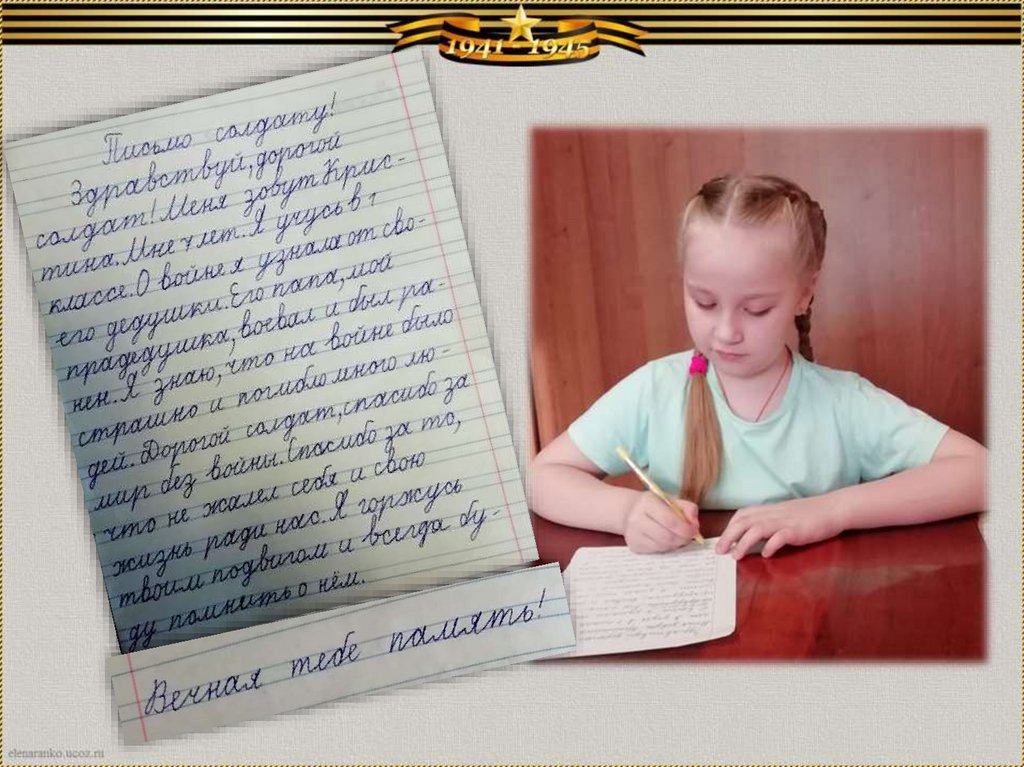 1941 - 1945
Письмо солдату!
Здравствуй, дорогой
солдат! Меня зовут Крис-
тина. Мне 7 лет. Я учусь в 1
классе. О войне я узнала от сво-
его дедушки. Его папа, мой
прадедушка, воевал и был ра-
нен. Я знаю, что на войне было
страшно и погибло много лю-
дей. Дорогой солдат, спасибо за
мир без войны. Спасибо за то,
что не жалел себя и свою
жизнь ради нас. Я горжусь
твоим подвигом и всегда бу-
ду помнить о нём.
Вечная тебе память!
elenaranko.ucoz.ru